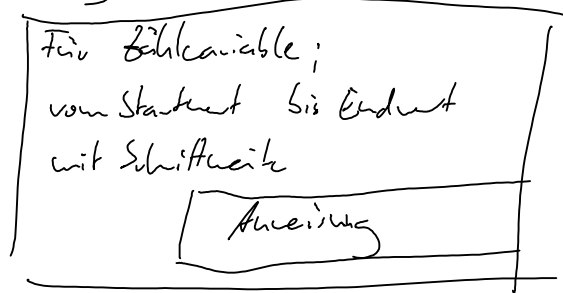 Für Zählvariable;
vom Startwert bis Endwert
mit Schrittweite
Anweisung